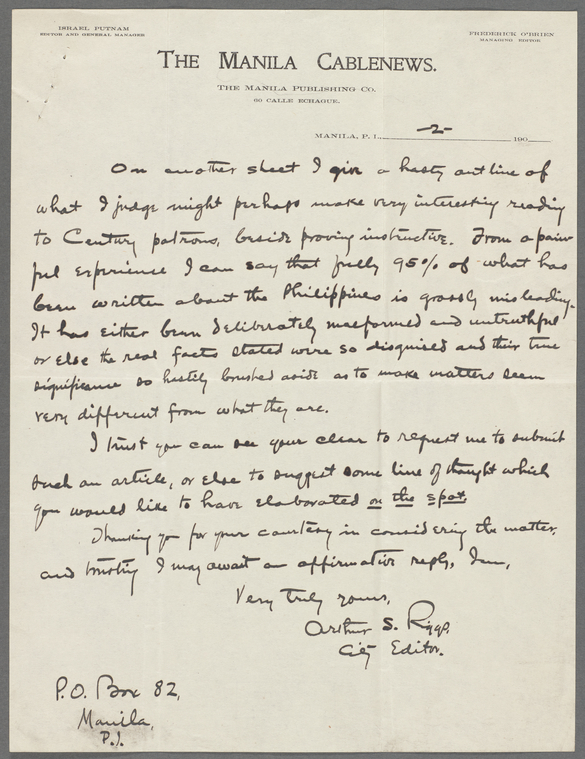 ISRAEL PUTNAM
EDITOR AND GENERAL MANAGER
FREDERICK O'BRIEN
MANAGING EDITOR
THE MANILA CABLENEWS.
THE MANILA PUBLISHING CO.
60 CALLE ECHAGUE.
MANILA, P. I. -2- 190
On another sheet I give a hasty outline of
what I judge might perhaps make very interesting reading
to Century patrons, beside proving instructive. From a pain-
ful experience I can say that fully 95% of what has
been written about the Philippines is grossly misleading.
It has either been deliberately malformed and untruthful
or else the real facts stated were so disguised and their true
significance so hastily brushed aside as to make matters seem
very different from what they are.
I trust you can see your clear to request me to submit
such an article, or else to suggest some line of thought which
you would like to have elaborated on the spot.
Thanking you for your courtesy in considering the matter,
and trusting I may await an affirmative reply, I am,
Very truly yours,
Arthur S. Riggs,
City Editor.
P.O. Box 82,
Manila,
P.I.